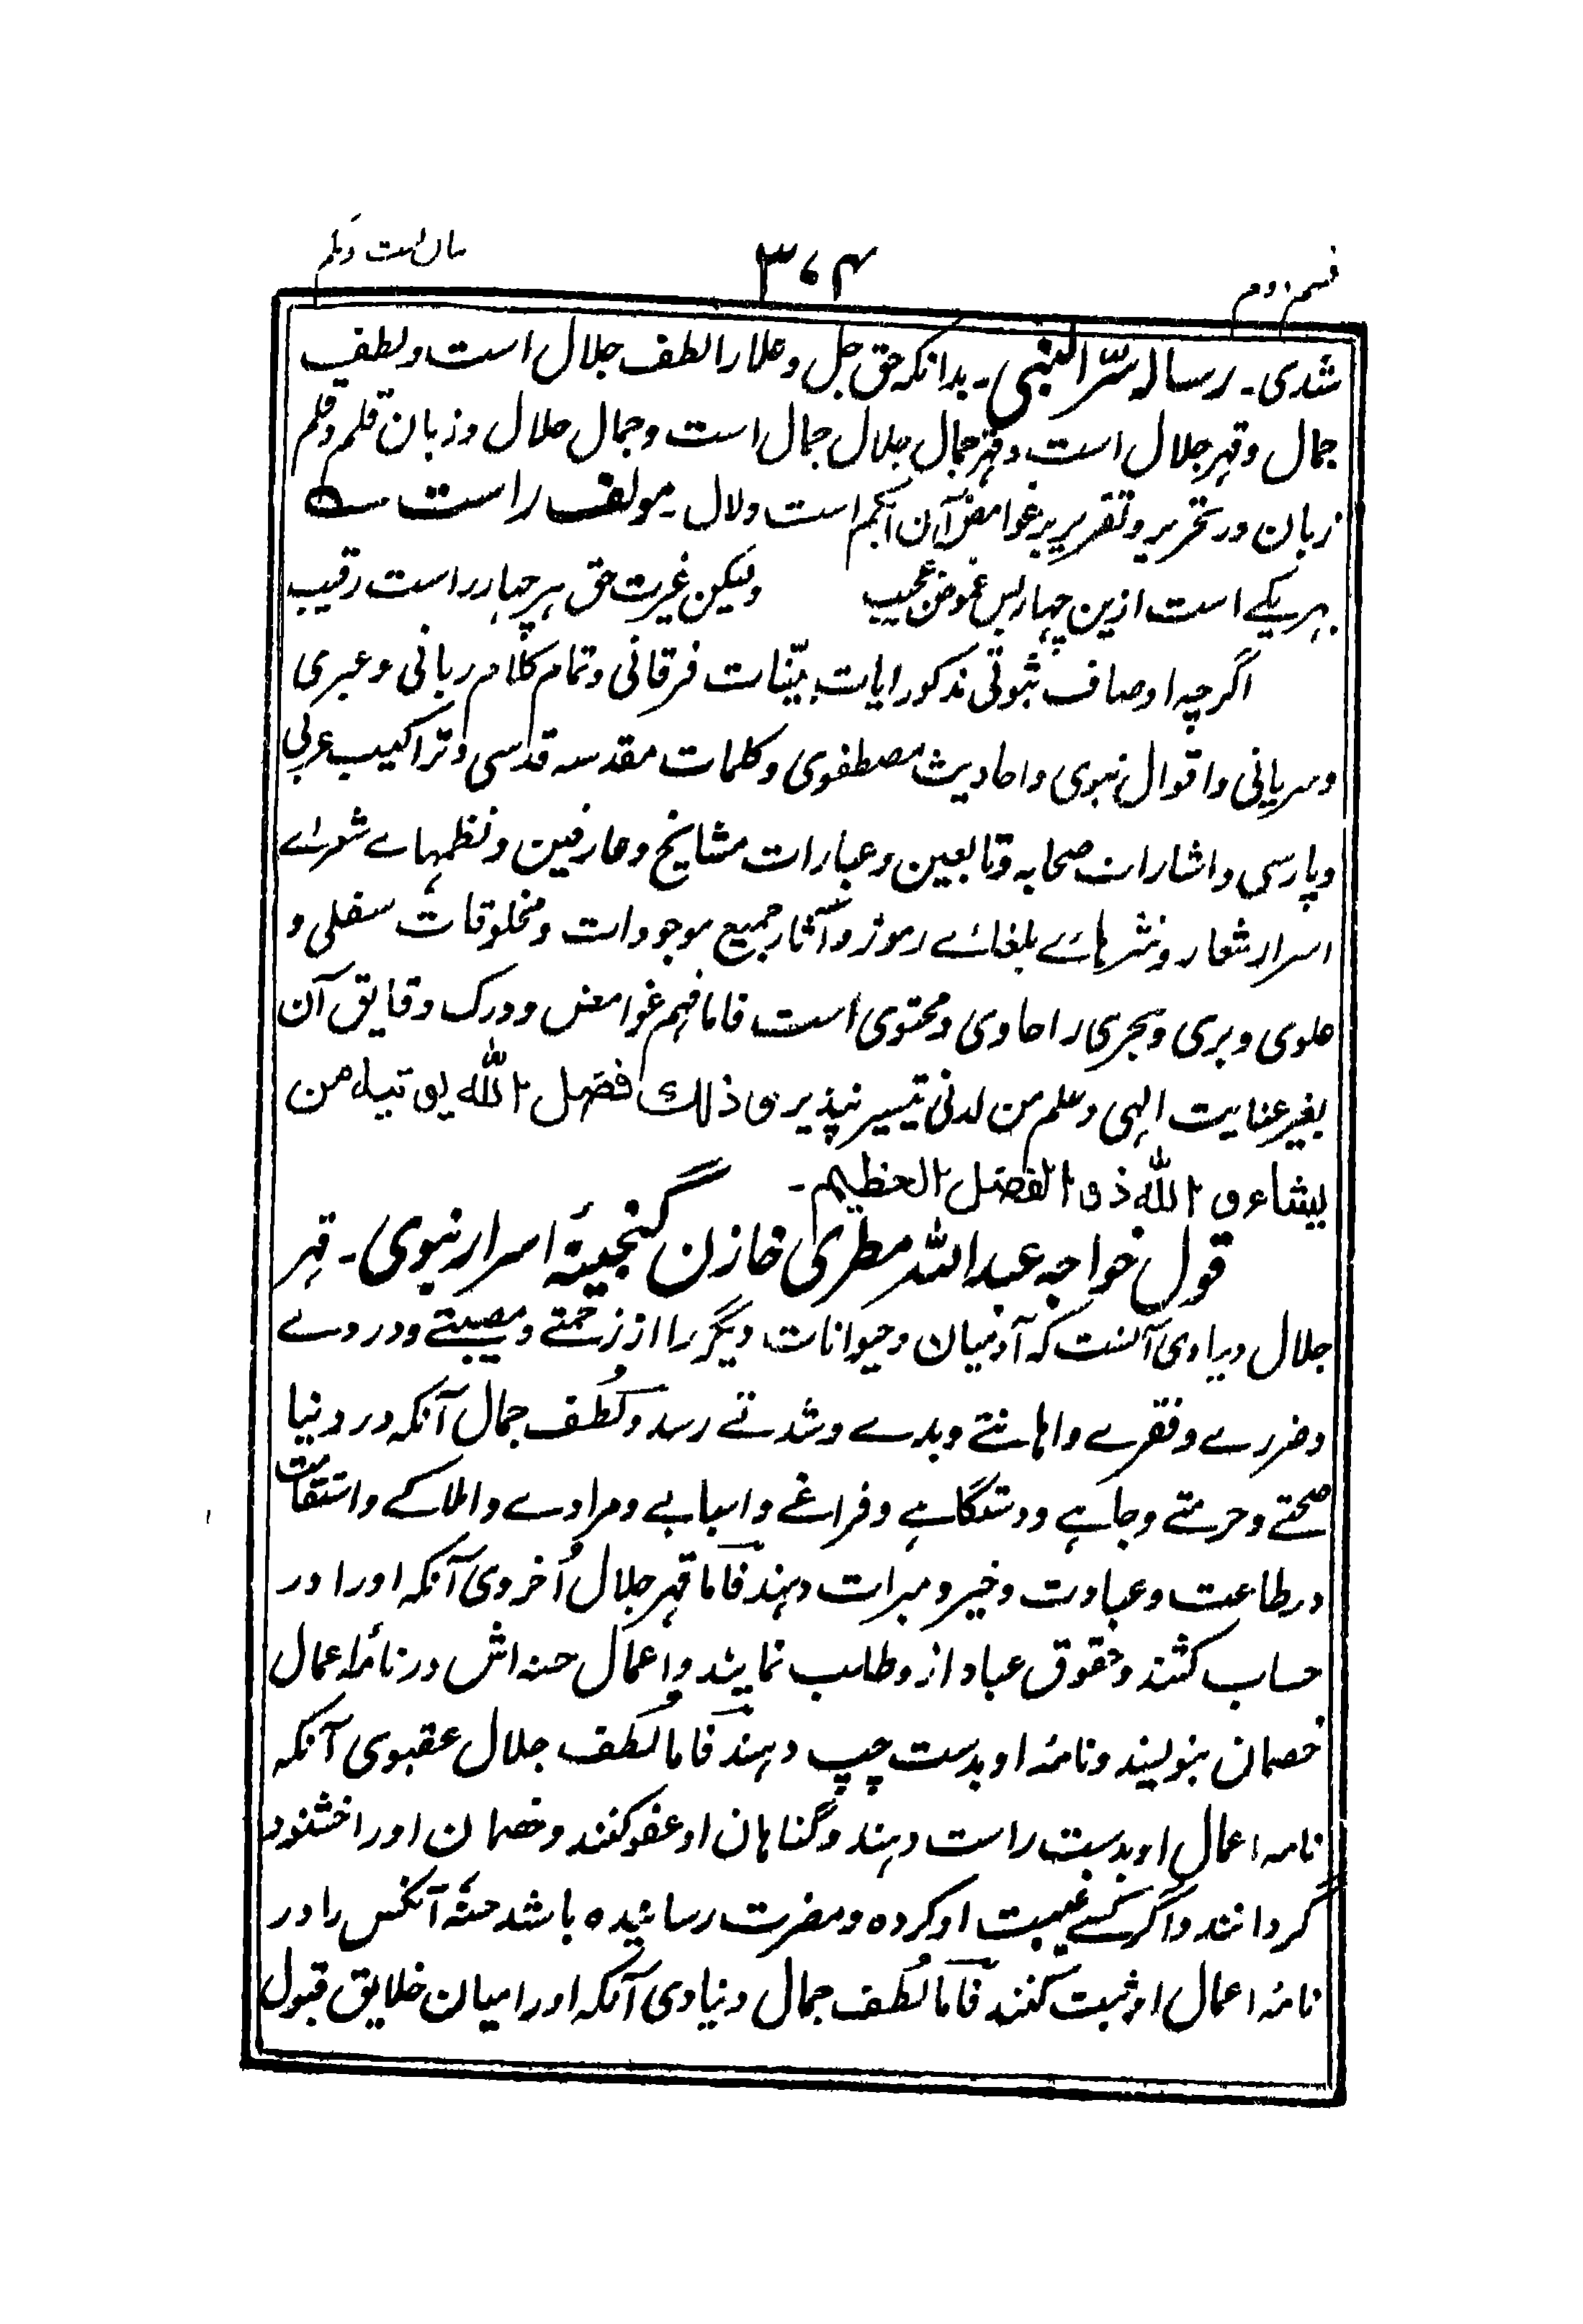 قسم دوم
۳۷۴
شدی۔ رسالہ سرّ النبی۔ بدانکہ حق جل و علا را لطف جلال است و لطف
جمال و قہر جلال است و قہر جمال جلال جمال است و جمال جلال و زبان قلم و قلم
زبان در تحریر و تقریر بر غوامض آن ابکم است و لال۔ مولف راست
بہر یکے است ازین چہار بس غموض عجیب ولیکن غیرت حق ہر چہار راست رقیب
اگرچہ اوصاف ثبوتی مذکور ایات بیّنات فرقانی و تمام کلام ربانی و عبری
و سریانی و اقوال نبوی و احادیث مصطفوی و کلمات مقدسہ قدسی و تراکیب عربی
و پارسی و اشارات صحابہ و تابعین و عبارات مشایخ و عارفین و نظمہاے شعراے
اسرار شعار و نثرہائے بلغائے رموز و آثار جمیع موجودات و مخلوقات سفلی و
علوی و بری و بحری را حاوی و محتوی است فاما فہم غوامض و درک دقایق آن
بغیر عنایت الہی و علم من لدنی تیسیر نپذیرد ذلك فضل الله یوتیه من
یشاء و الله ذو الفضل العظیم۔
قول خواجہ عبداللہ مطری خازن گنجینۂ اسرار نبوی۔ قہر
جلال دنیاوی آنست کہ آدمیان و حیوانات دیگر را از زحمتے و مصیبتے و دردے
و ضررے و فقرے و اہانتے و بدے و شدتے رسد و لُطف جمال آنکہ در دنیا
صحتے و حرمتے و جاہے و دستگاہے و فراغے و اسبابے و مرادے و املاکے و استقامت
در طاعت و عبادت و خیر و مبرات دہند فاما قہر جلال اُخروی آنکہ اورا در
حساب کشند و حقوق عباد ازو طلب نمایند و اعمال حسنہ اش در نامۂ اعمال
خصمان بنویسند و نامۂ او بدست چپ دہند فاما لُطف جلال عقبوی آنکہ
نامہ اعمال او بدست راست دہند و گناہان او عفو کنند و خصمان اورا خشنود
گردانند و اگر کسے غیبت او کردہ و مضرت رسانیدہ باشد حسنۂ آنکس را در
نامۂ اعمال او ثبت کنند فاما لُطف جمال دنیاوی آنکہ اورا میان خلایق قبول